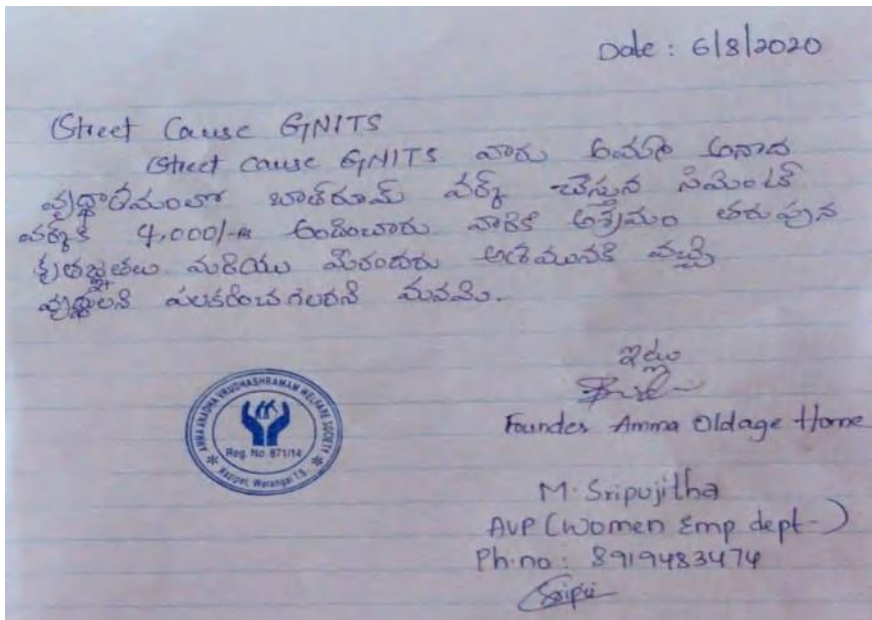 Date : 6/8/2020
Street Cause GNITS
Street cause GNITS వారు అమ్మ అనాద
వృద్ధాశ్రమంలో బాత్‌రూమ్ వర్క్ చేస్తున సిమెంట్
వర్క్‌కి 4,000/- అందించారు వారికి ఆశ్రమం తరుపున
కృతజ్ఞతలు మరియు మీరందరు ఆశ్రమునకి వచ్చి
వృద్ధులని పలకరించగలరని మనవి.
ఇట్లు
Founder Amma Oldage Home
AMMA ANADHA VRUDHASHRAMAM WELFARE SOCIETY
Reg. No. 671/14
Kazipet, Warangal T.S.
M. Sripujitha
AVP (Women Emp dept-)
Ph.no : 8919483474
Sripu